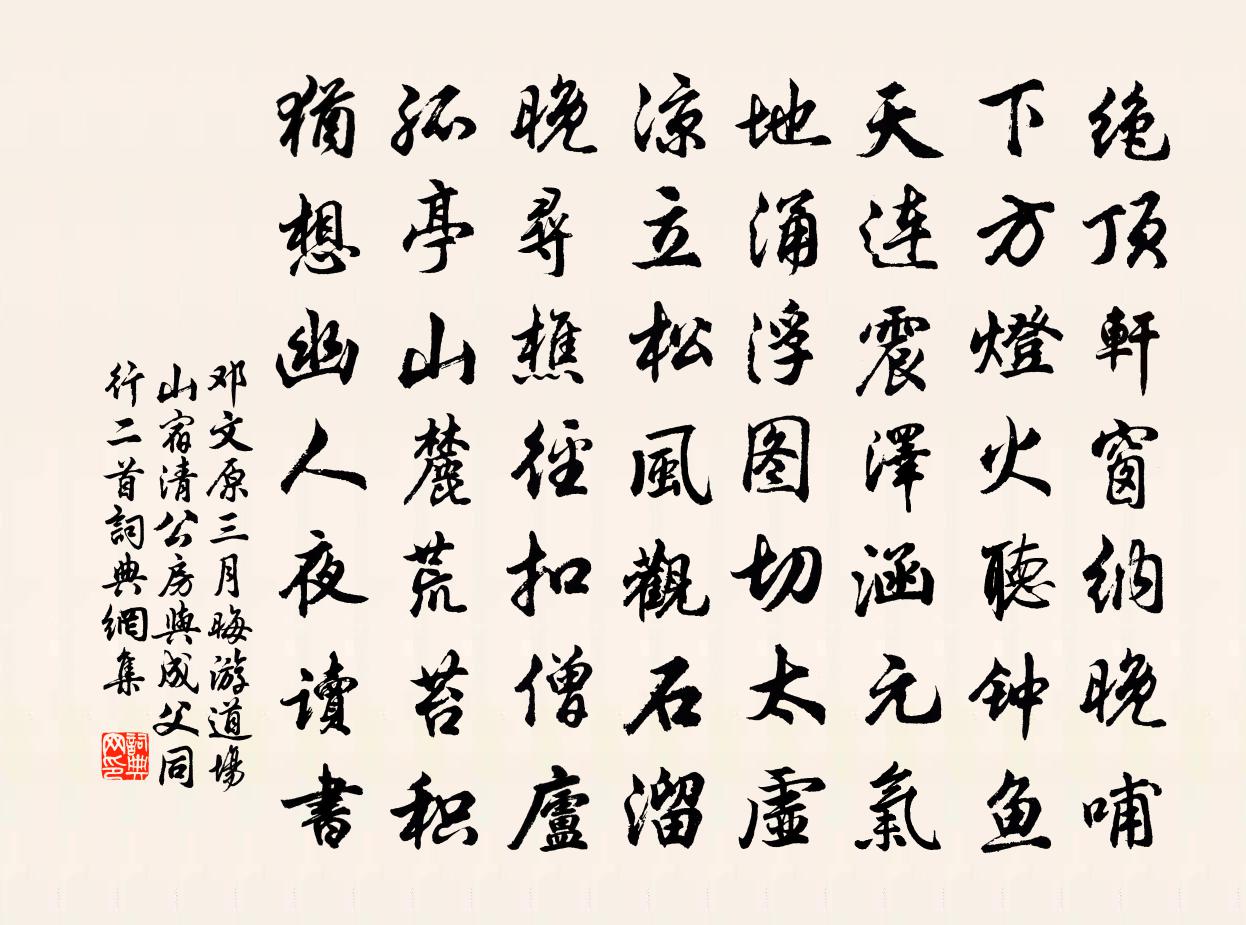 绝顶軒窗纳晚哺
下方燈火聽钟鱼
天连震澤涵元氣
地涌浮图切太虛
凉立松風觀石溜
晚尋樵径扣僧廬
孤亭山麓荒苔积
猶想幽人夜读書
邓文原三月晦游道場
山宿清公房與成父同
行二首詞典網集
詞典
网印